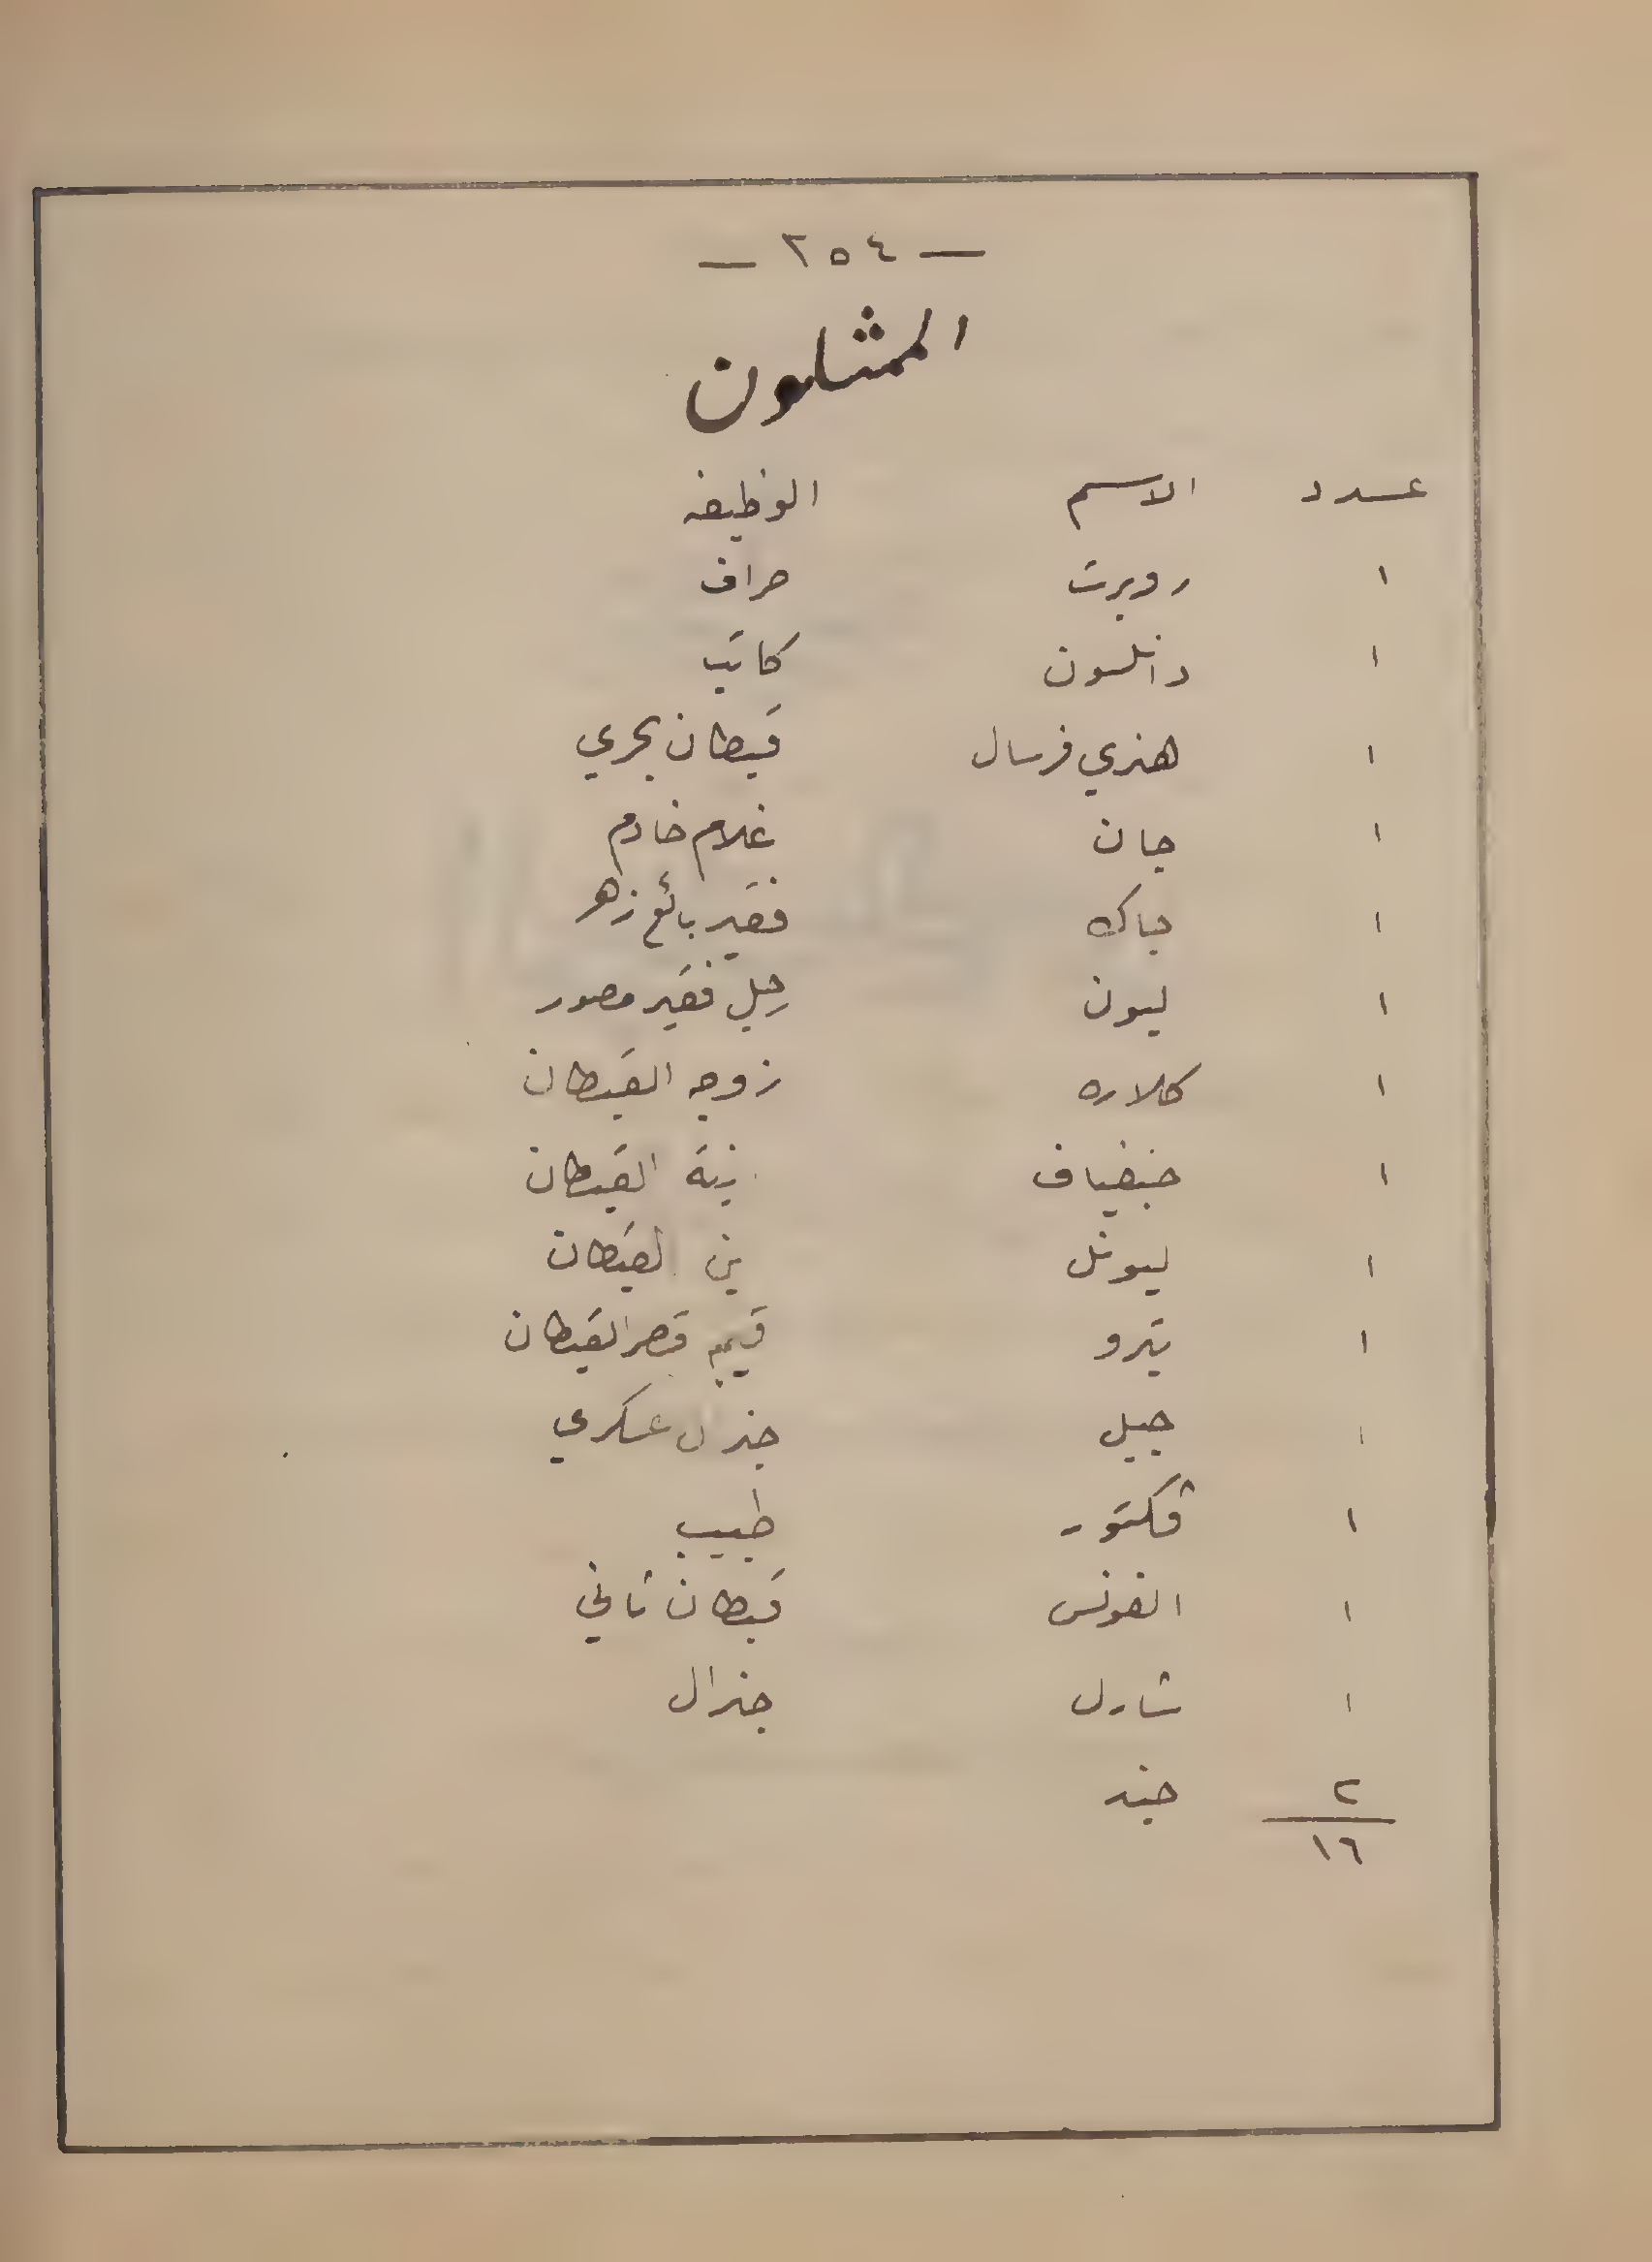 — ٢٥٤ —
الممثلون
عدد الاسم الوظيفه
١ روبرت صراف
١ دانلسون كاتب
١ هنري فرسال قبطان بحري
١ جان غلام خادم
١ جاك فقير بائع زهر
١ ليون رجل فقير مصور
١ كلاره زوجه القبطان
١ جنفياف ابنة القبطان
١ ليونل ابن القبطان
١ بترو قيم قصر القبطان
١ جيل جنرال عسكري
١ ڤكتور طبيب
١ الفونس قبطان ثاني
١ شارل جنرال
٢ جند
١٦